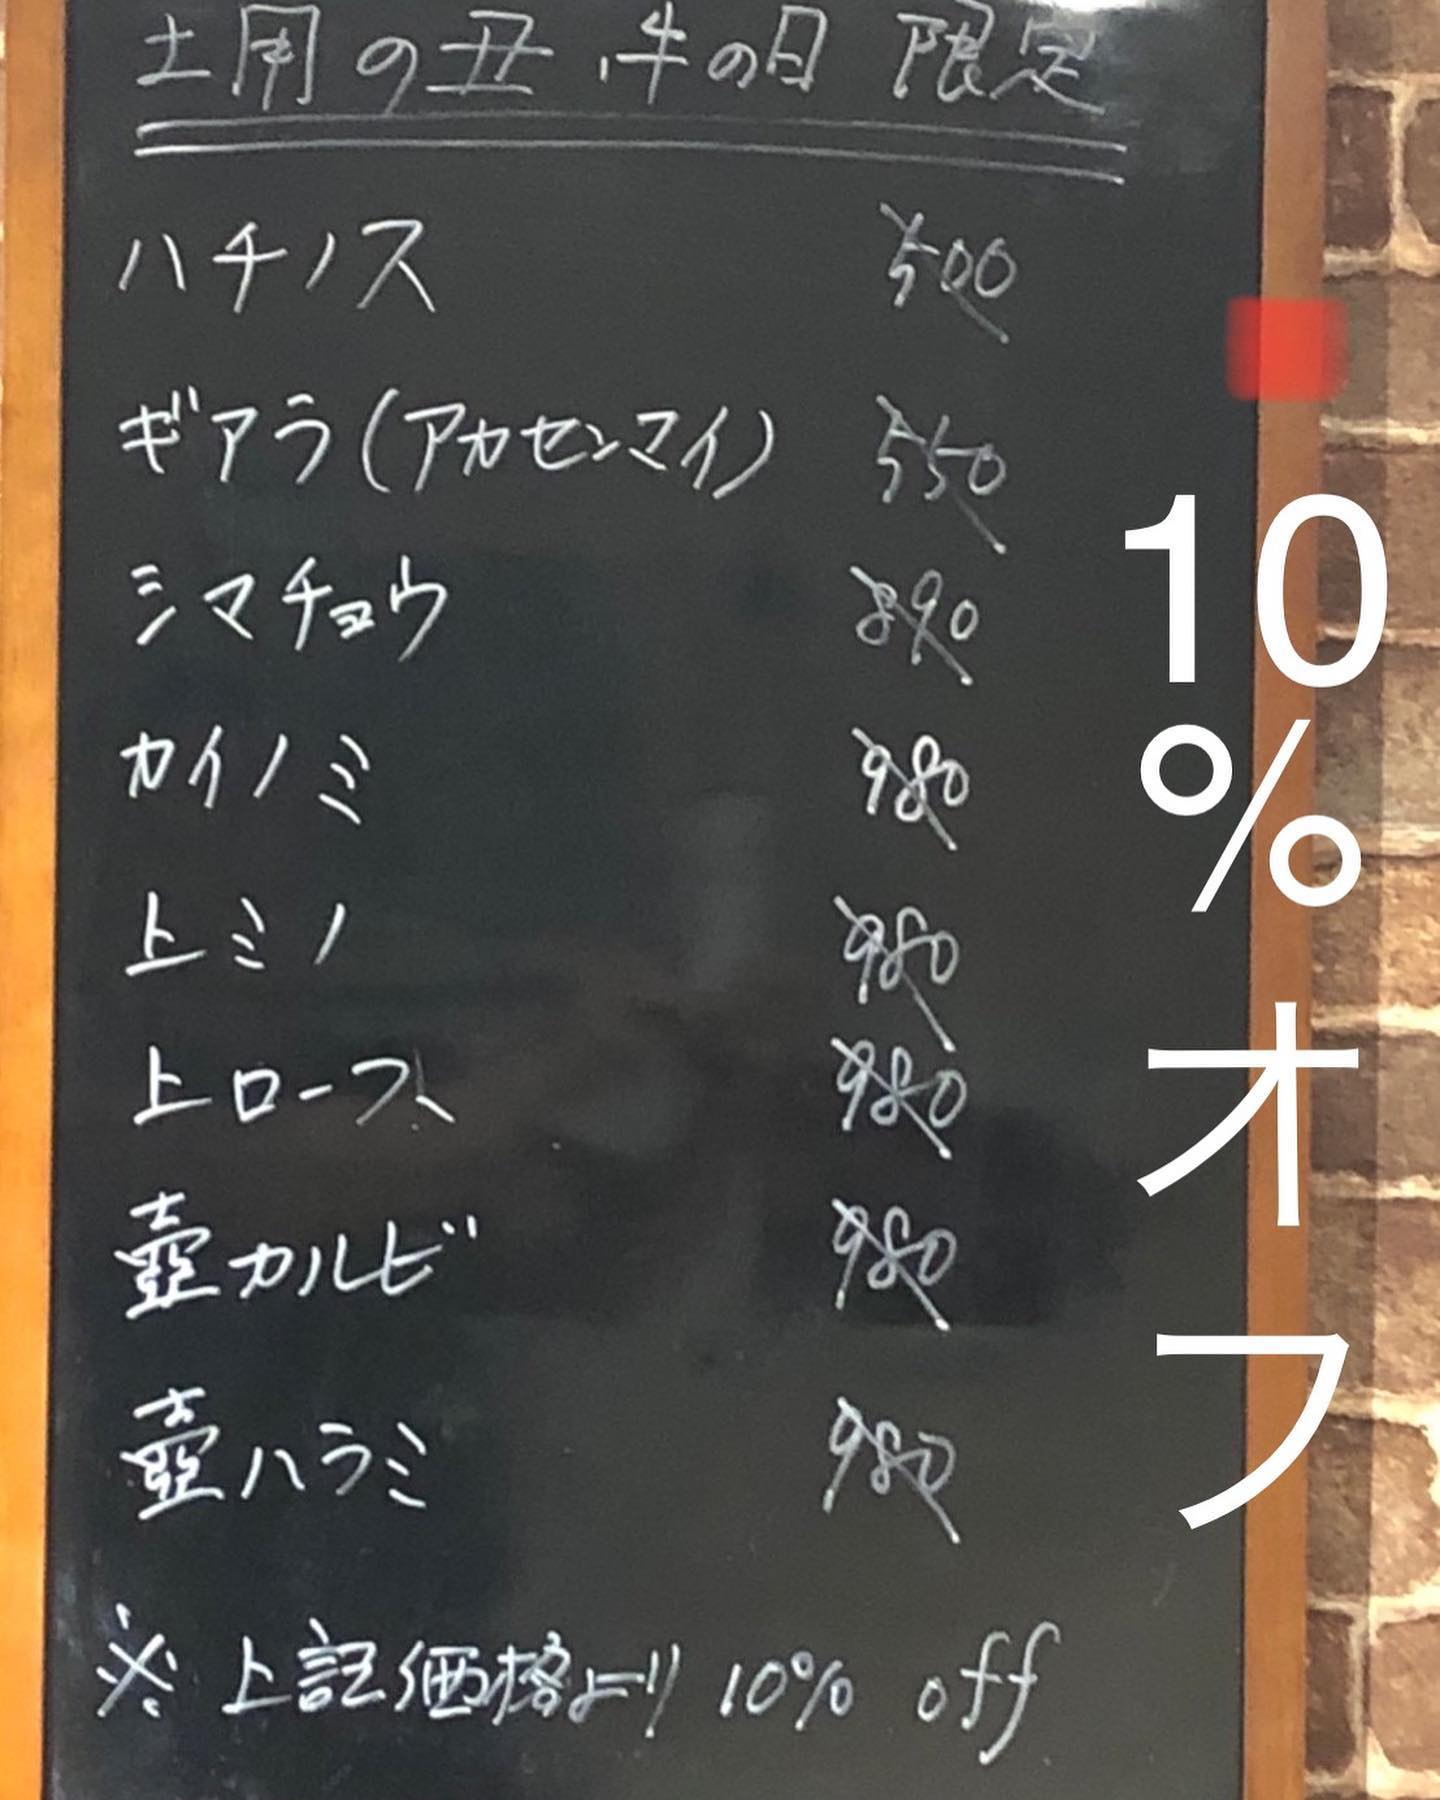 土用の丑、牛の日 限定
ハチノス 500
ギアラ(アカセンマイ) 550
シマチョウ 890
カイノミ 980
上ミノ 980
上ロース 980
壺カルビ 980
壺ハラミ 980
※ 上記価格より 10% off
10%オフ